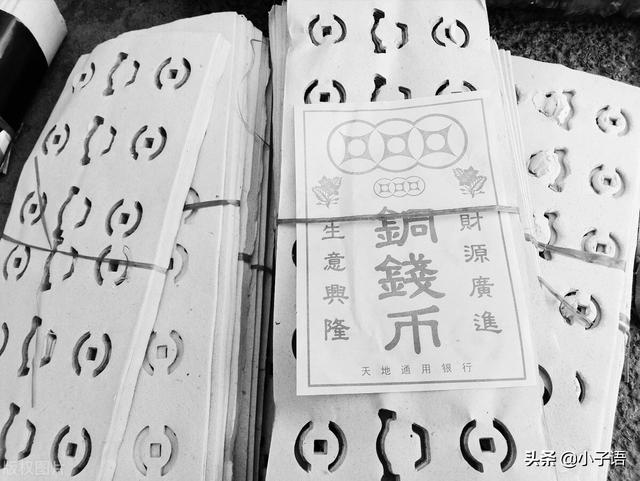 財源廣進
銅錢币
生意興隆
天地通用银行
版权图
头条 @小子语